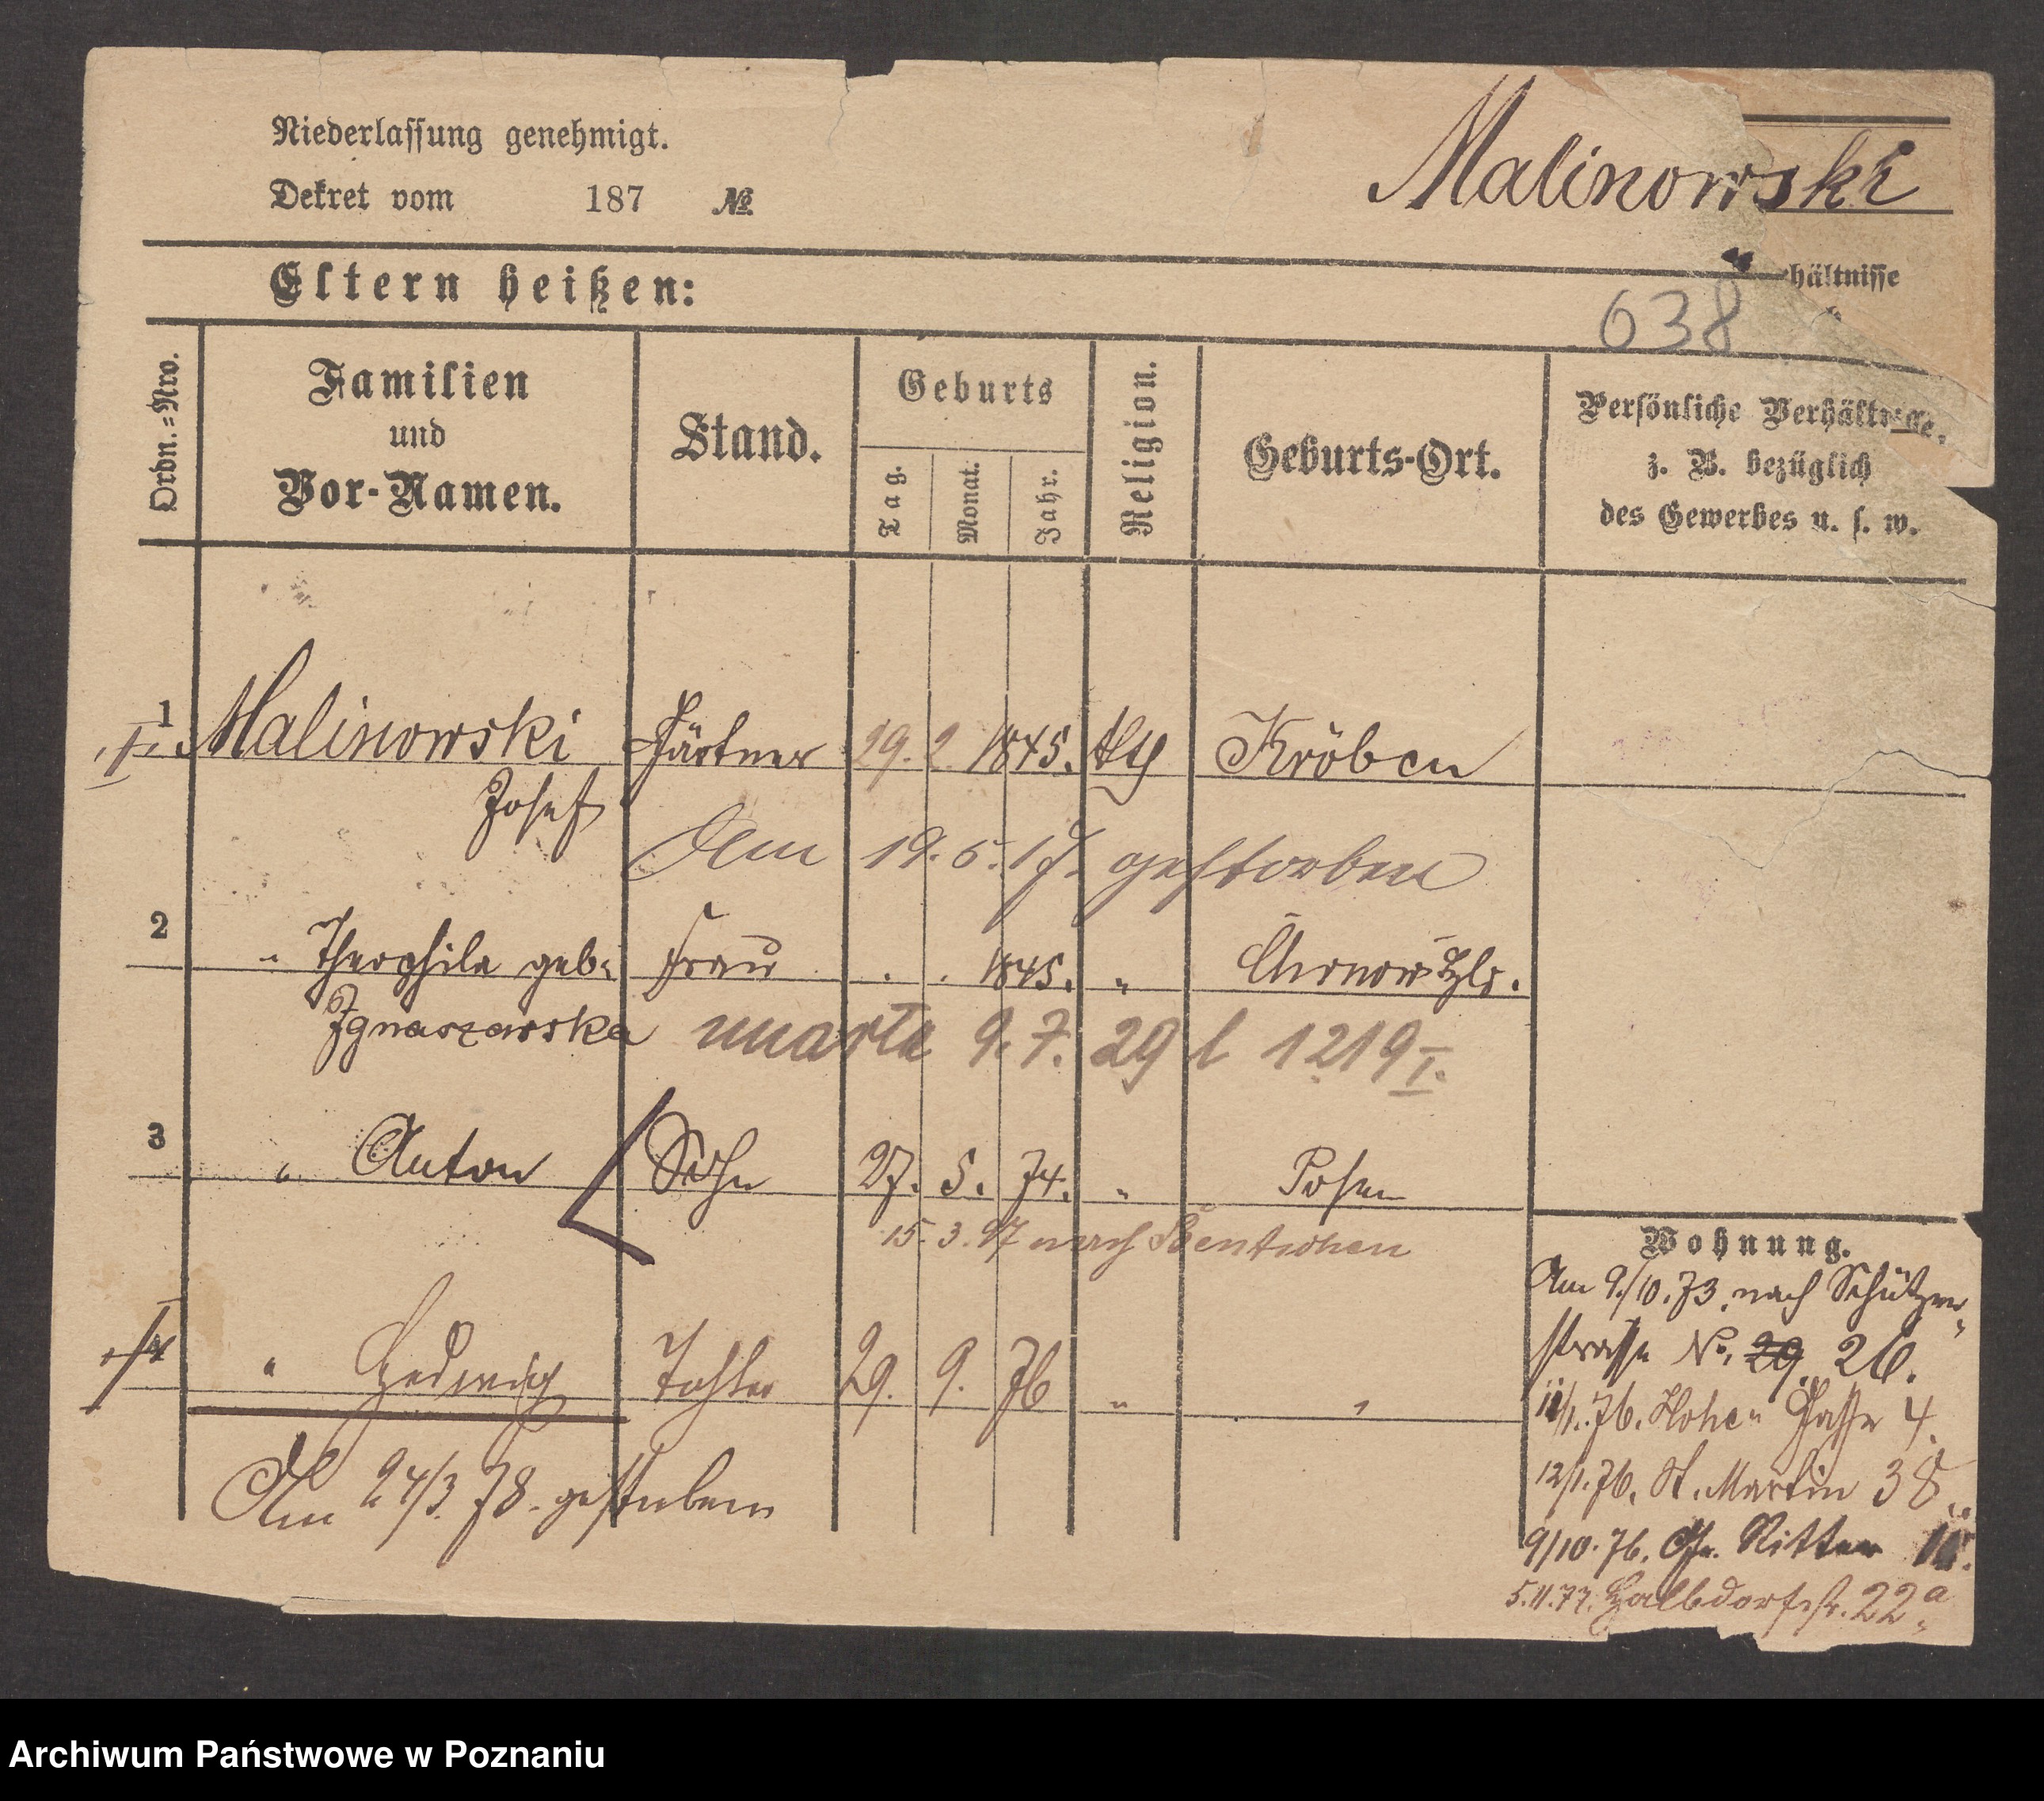 Niederlassung genehmigt.
Dekret vom 187 №
Malinowski
Eltern heißen:
hältnisse
638
Ordn.=Nro.
Familien
und
Vor-Namen.
Stand.
Geburts
Tag.
Monat.
Jahr.
Religion.
Geburts-Ort.
Persönliche Verhältnisse.
z. B. bezüglich
des Gewerbes u. s. w.
1 Malinowski Gärtner 29. 2. 1845. kth Kröben
Josef
Am 19. 5. 17. gestorben
2 " Theophila geb. Frau . . 1845. "
Ignaszewska
umarła 9.7.29 l 1219 I.
3 " Anton Sohn 27. 5. 74. " Posen
15.3.97 nach Bentschen
4 " Hedwig Tochter 29. 9. 76 " "
Am 24/3. 78. gestorben
Wohnung.
Am 9./10.73. nach Schützen-
strasse No. 29. 26.
11/1.76. Hohe Gasse 4.
12/1.76. St. Martin 38.
9/10.76. Gr. Ritter
5.11.77. Halbdorfstr. 22a.
Archiwum Państwowe w Poznaniu